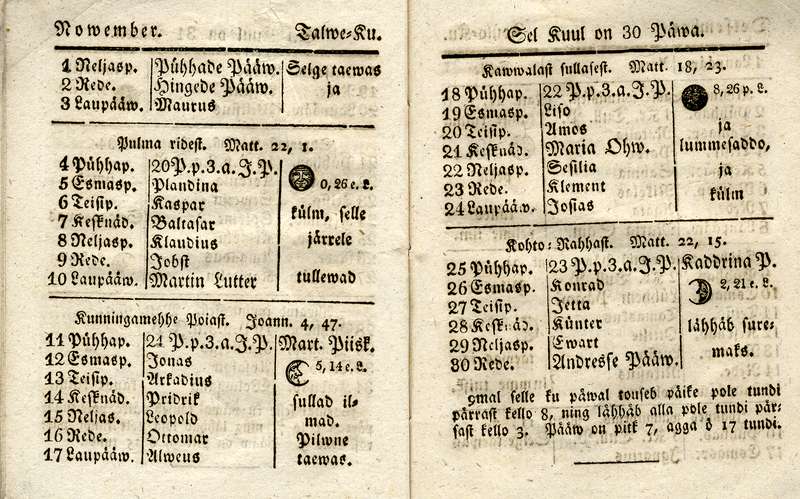 Nowember. Talwe-Ku.
1 Neljasp. Pühhade Pääw. Selge taewas
2 Rede. Hingede Pääw. ja
3 Laupääw. Maurus
Pulma ridest. Matt. 22, 1.
4 Pühhap. 20 P. p. 3. a. J. P.
5 Esmasp. Plandina 0, 26 e. L.
6 Teisip. Kaspar
7 Kesknäd. Baltasar külm, selle
8 Neljasp. Klaudius järrele
9 Rede. Jobst
10 Laupääw. Martin Lutter tullewad
Kunningamehhe Poiast. Joann. 4, 47.
11 Pühhap. 21 P. p. 3. a. J. P. Mart. Piisk.
12 Esmasp. Jonas 5, 14 e. L.
13 Teisip. Arkadius
14 Kesknäd. Pridrik sullad il-
15 Neljas. Leopold mad.
16 Rede. Ottomar Pilwne
17 Laupääw. Alweus taewas.
Sel Kuul on 30 Päwa.
Kawwalast sullasest. Matt. 18, 23.
18 Pühhap. 22 P. p. 3. a. J. P. 8, 26 p. L.
19 Esmasp. Liso
20 Teisip. Amos ja
21 Kesknäd. Maria Ohw. lummesaddo,
22 Neljasp. Sesilia ja
23 Rede. Klement
24 Laupääw. Josias külm
Kohto-Rahhast. Matt. 22, 15.
25 Pühhap. 23 P. p. 3. a. J. P. Kaddrina P.
26 Esmasp. Konrad 2, 21 e. L.
27 Teisip. Jetta
28 Kesknäd. Künter lähhäb sure-
29 Neljasp. Ewart maks.
30 Rede. Andresse Pääw.
9mal selle ku päwal touseb päike pole tundi
pärrast kello 8, ning lähhäb alla pole tundi pär-
rast kello 3. Pääw on pitk 7, agga ö 17 tundi.